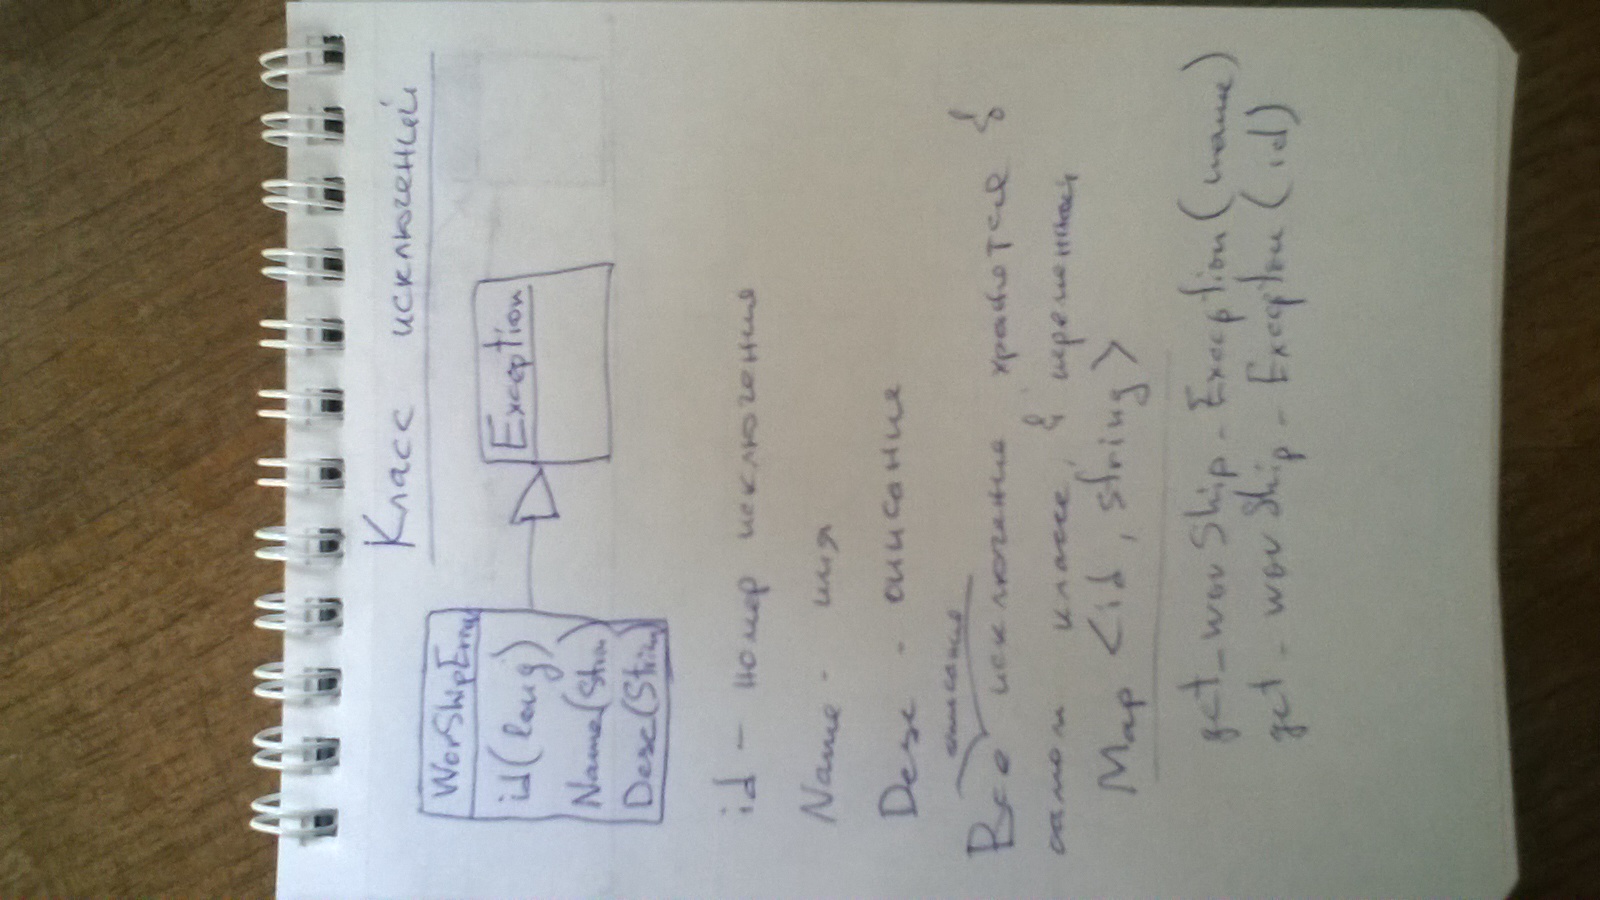 Класс исключений
WorShipError
id(long)
Name(Strin)
Desc(String)
Exception
id - номер исключения
Name - имя
Desc - описание
описание
Все исключение хранятся в
самом классе, в переменной
Map <id, string>
get_worShip_Exception(name)
get_worShip_Exception(id)